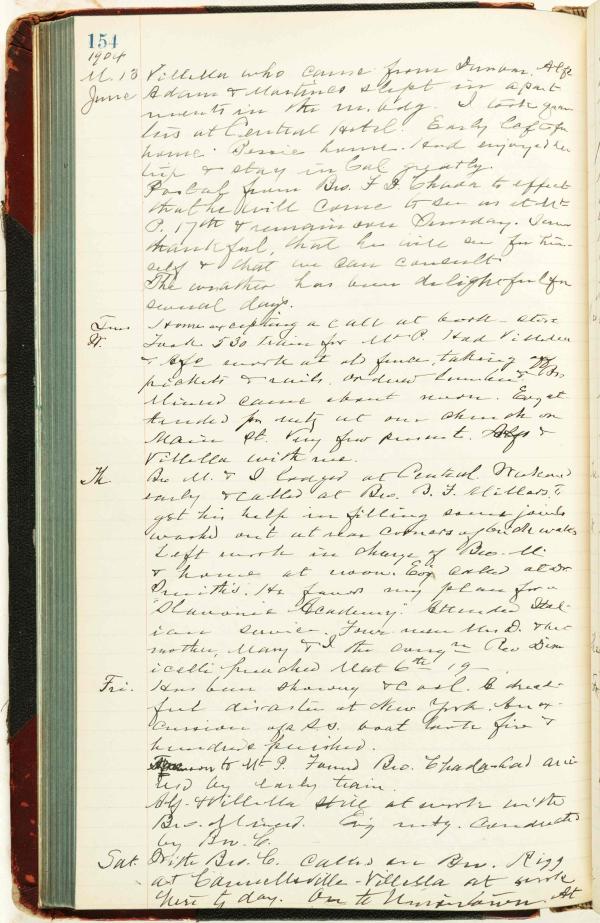 154
1904
M. 13 Villella who came from Dunbar. Alf
June Adam & Martinec slept in apart
ments in the m. bdg. I took quar
ters at Central Hotel. Early left for
home. Bessie home. Had enjoyed her
trip & stay in Cal greatly.
Postal from Bro. F. J. Chada to effect
that he will come to see us at Mt
P. 17th & remain over Sunday. I am
thankful, that he will see for him-
self & that we can consult.
The weather has been delightful for
several days.
Tues Home excepting a call at book-store
W. Took 530 train for Mt P. Had Villella
& Alf work at old fence, taking off
pickets & rails. Ordered lumber. Bro
Minerd came about noon. Evg at
tended pr mtg at our church on
Main St. Very few present. Alf &
Villella with me.
Th Bro M. & I lodged at Central. Wakened
early & called at Bro. B. F. Millers to
get his help in filling some joints
washed out at rear corners of brick walls
Left work in charge of Bro. M
& home at noon. Evg called at Dr
Smith's. He favors my plan for a
"Slavonic Academy." Attended Ital-
ian service. Four men Mrs D. & her
mother, Mary & I the congrn Rev Dim
icelli preached Matt 6th 19
Fri. Has been showery & cool. A dread-
ful disaster at New York. An ex-
cursion of S.S. boat took fire &
hundreds perished.
to Mt P. Found Bro. Chada had arri
ved by early train.
Alf & Villella still at work with
Bro. Minerd. Evg mtg. conducted
by Bro. C.
Sat. With Bro. C. called on Bro. Rigg
at Connellsville - Villella at work
here ½ day. On to Uniontown. At